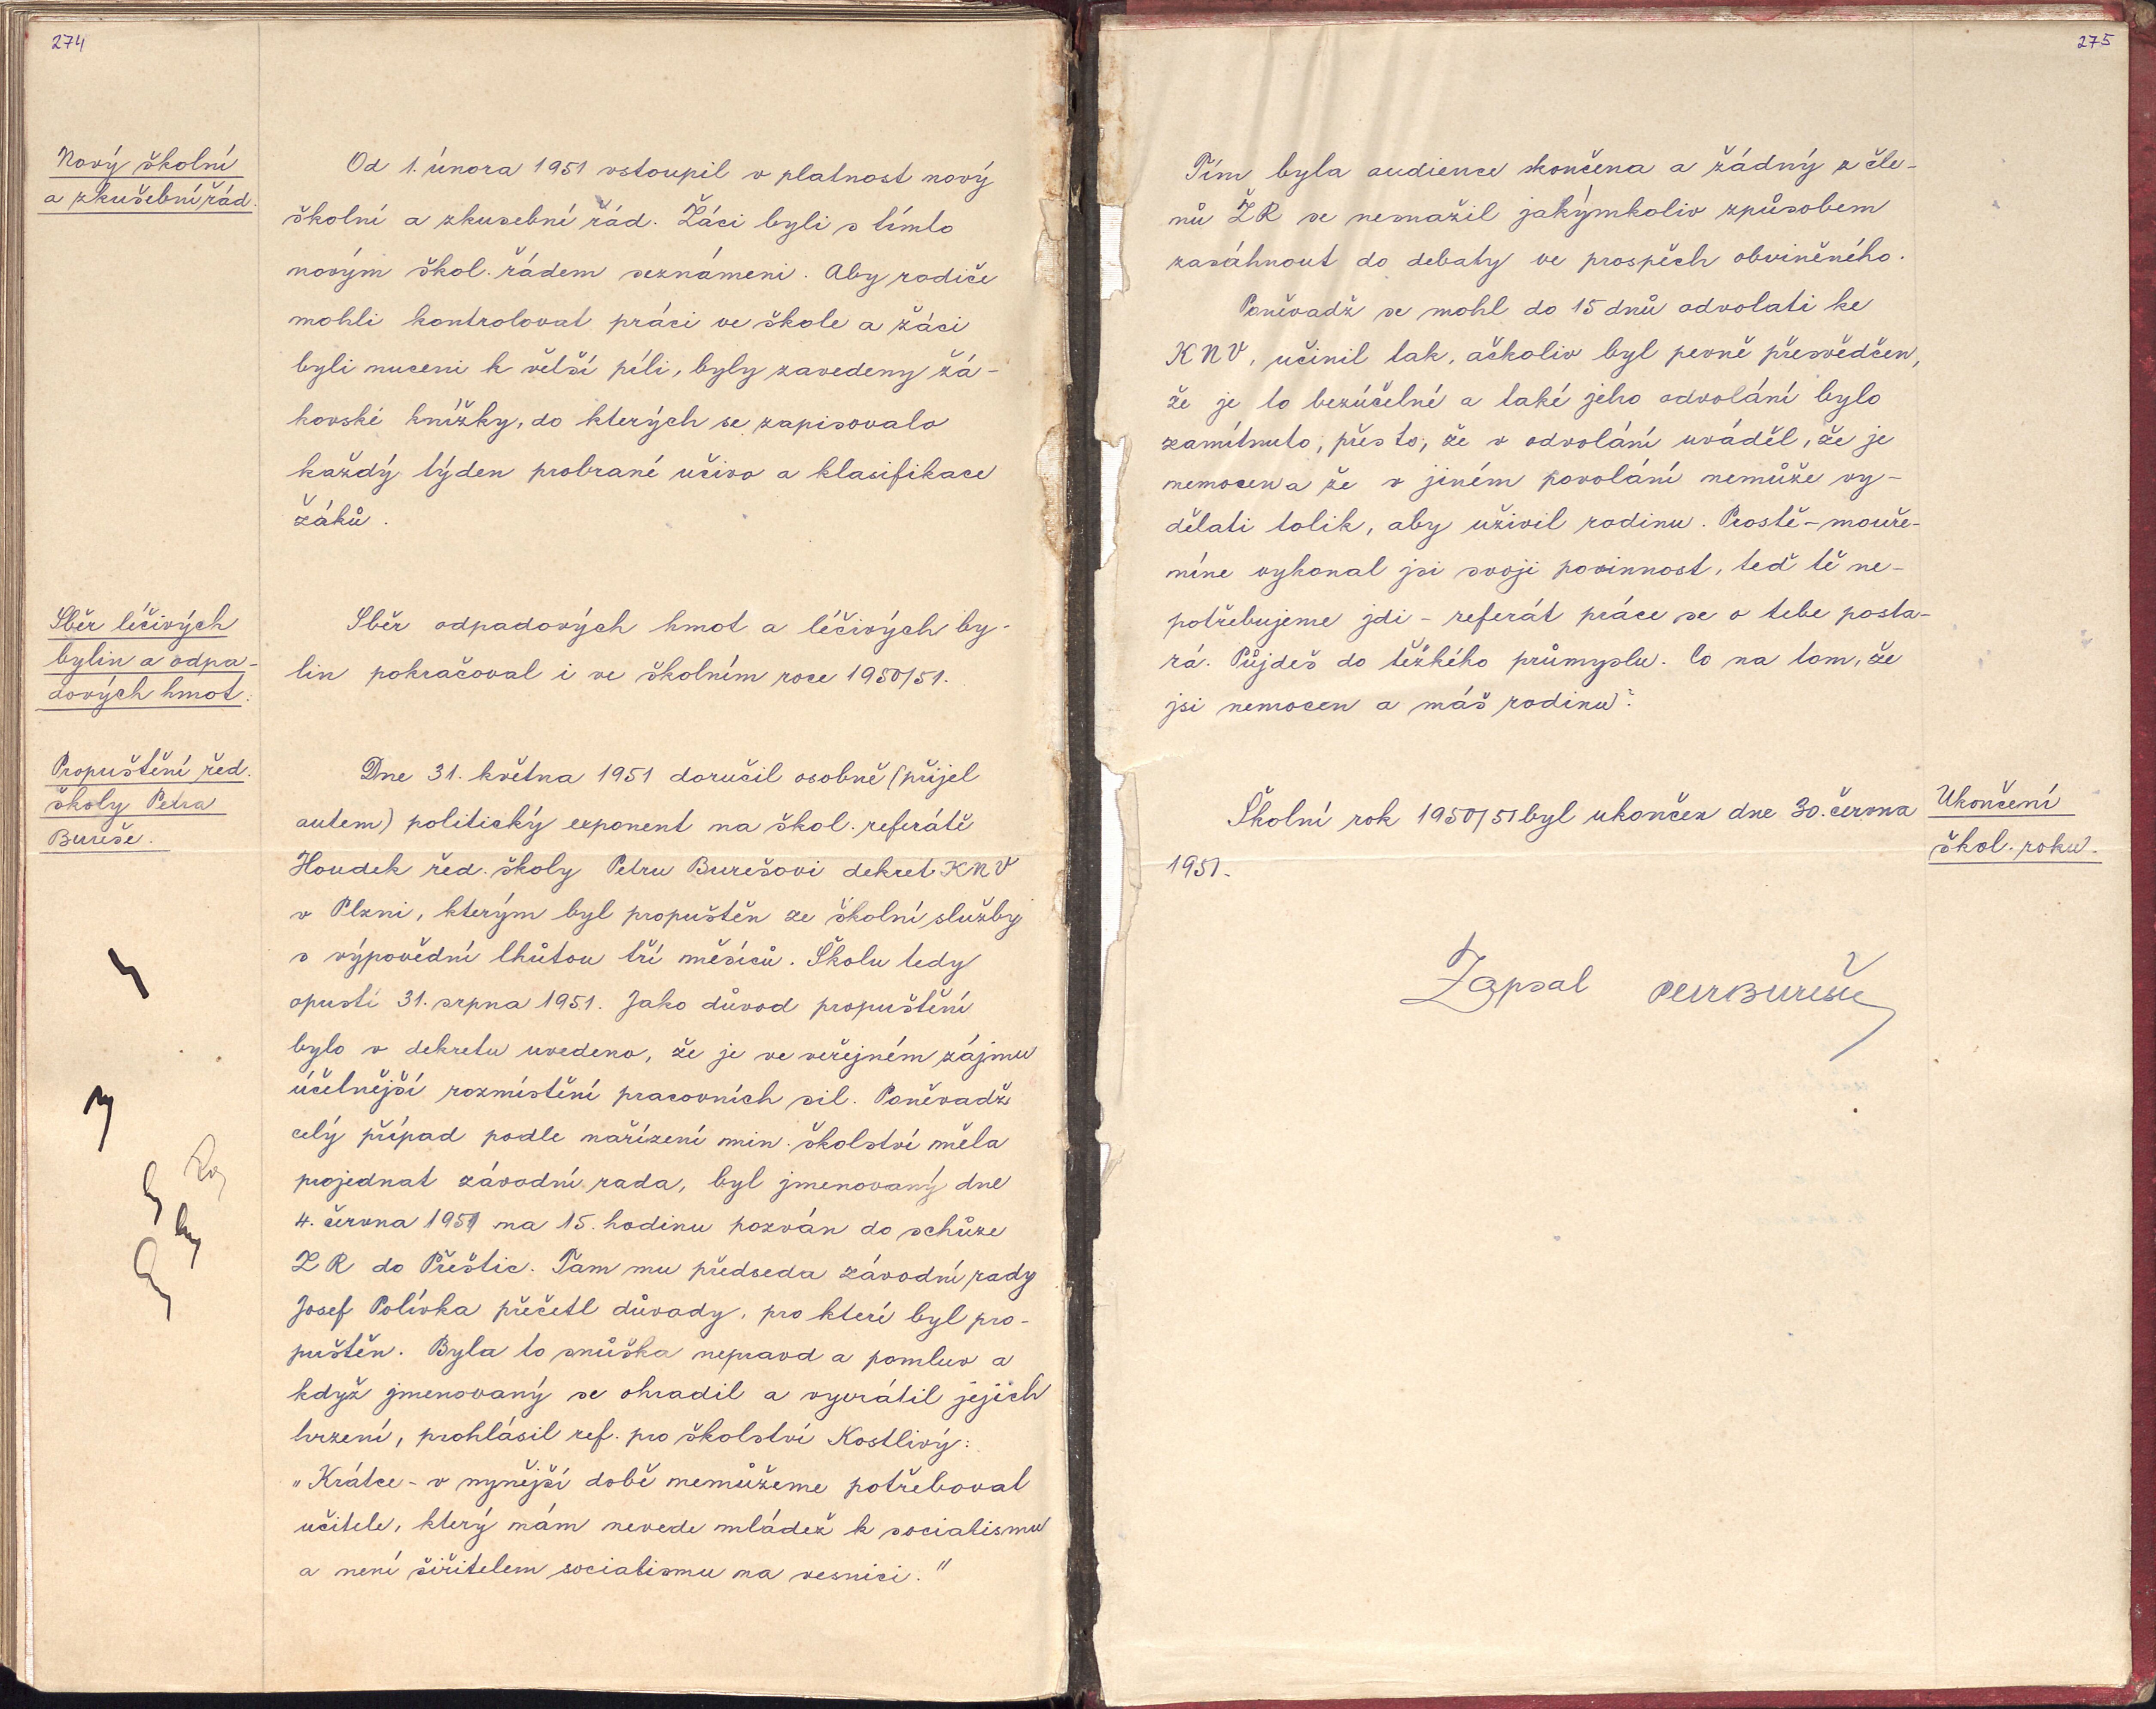 274
Nový školní
a zkušební řád.
Od 1. února 1951 vstoupil v platnost nový
školní a zkusební řád. Žáci byli s tímto
novým škol. řádem seznámeni. Aby rodiče
mohli kontrolovat práci ve škole a žáci
byli nuceni k větší píli, byly zavedeny žá-
kovské knížky, do kterých se zapisovalo
každý týden probrané učivo a klasifikace
žáků.
Sběr léčivých
bylin a odpa-
dových hmot.
Sběr odpadových hmot a léčivých by-
lin pokračoval i ve školním roce 1950/51.
Propuštění řed.
školy Petra
Bureše.
Dne 31. května 1951 doručil osobně (přijel
autem) politický exponent na škol. referátě
Houdek řed. školy Petru Burešovi dekret KNV
v Plzni, kterým byl propuštěn ze školní služby
s výpovědní lhůtou tří měsíců. Školu tedy
opustí 31. srpna 1951. Jako důvod propuštění
bylo v dekretu uvedeno, že je ve veřejném zájmu
účelnější rozmístění pracovních sil. Poněvadž
celý případ podle nařízení min. školství měla
projednat závodní rada, byl jmenovaný dne
4. června 1951 na 15. hodinu pozván do schůze
ZR do Přeštic. Tam mu předseda závodní rady
Josef Polívka přečetl důvody, pro které byl pro-
puštěn. Byla to snůška nepravd a pomluv a
když jmenovaný se ohradil a vyvrátil jejich
tvrzení, prohlásil ref. pro školství Kostlivý:
„Krátce - v nynější době nemůžeme potřebovat
učitele, který nám nevede mládež k socialismu
a není šiřitelem socialismu na vesnici."
275
Tím byla audience skončena a žádný z čle-
nů ZR se nesnažil jakýmkoliv způsobem
zasáhnout do debaty ve prospěch obviněného.
Poněvadž se mohl do 15 dnů odvolati ke
KNV, učinil tak, ačkoliv byl pevně přesvědčen,
že je to bezúčelné a také jeho odvolání bylo
zamítnuto, přes to, že v odvolání uváděl, že je
nemocen a že v jiném povolání nemůže vy-
dělati tolik, aby uživil rodinu. Prostě - mouře-
níne vykonal jsi svoji povinnost, teď tě ne-
potřebujeme jdi - referát práce se o tebe posta-
rá. Půjdeš do těžkého průmyslu. Co na tom, že
jsi nemocen a máš rodinu?
Školní rok 1950/51 byl ukončen dne 30. června
1951.
Ukončení
škol. roku.
Zapsal Petr Bureš